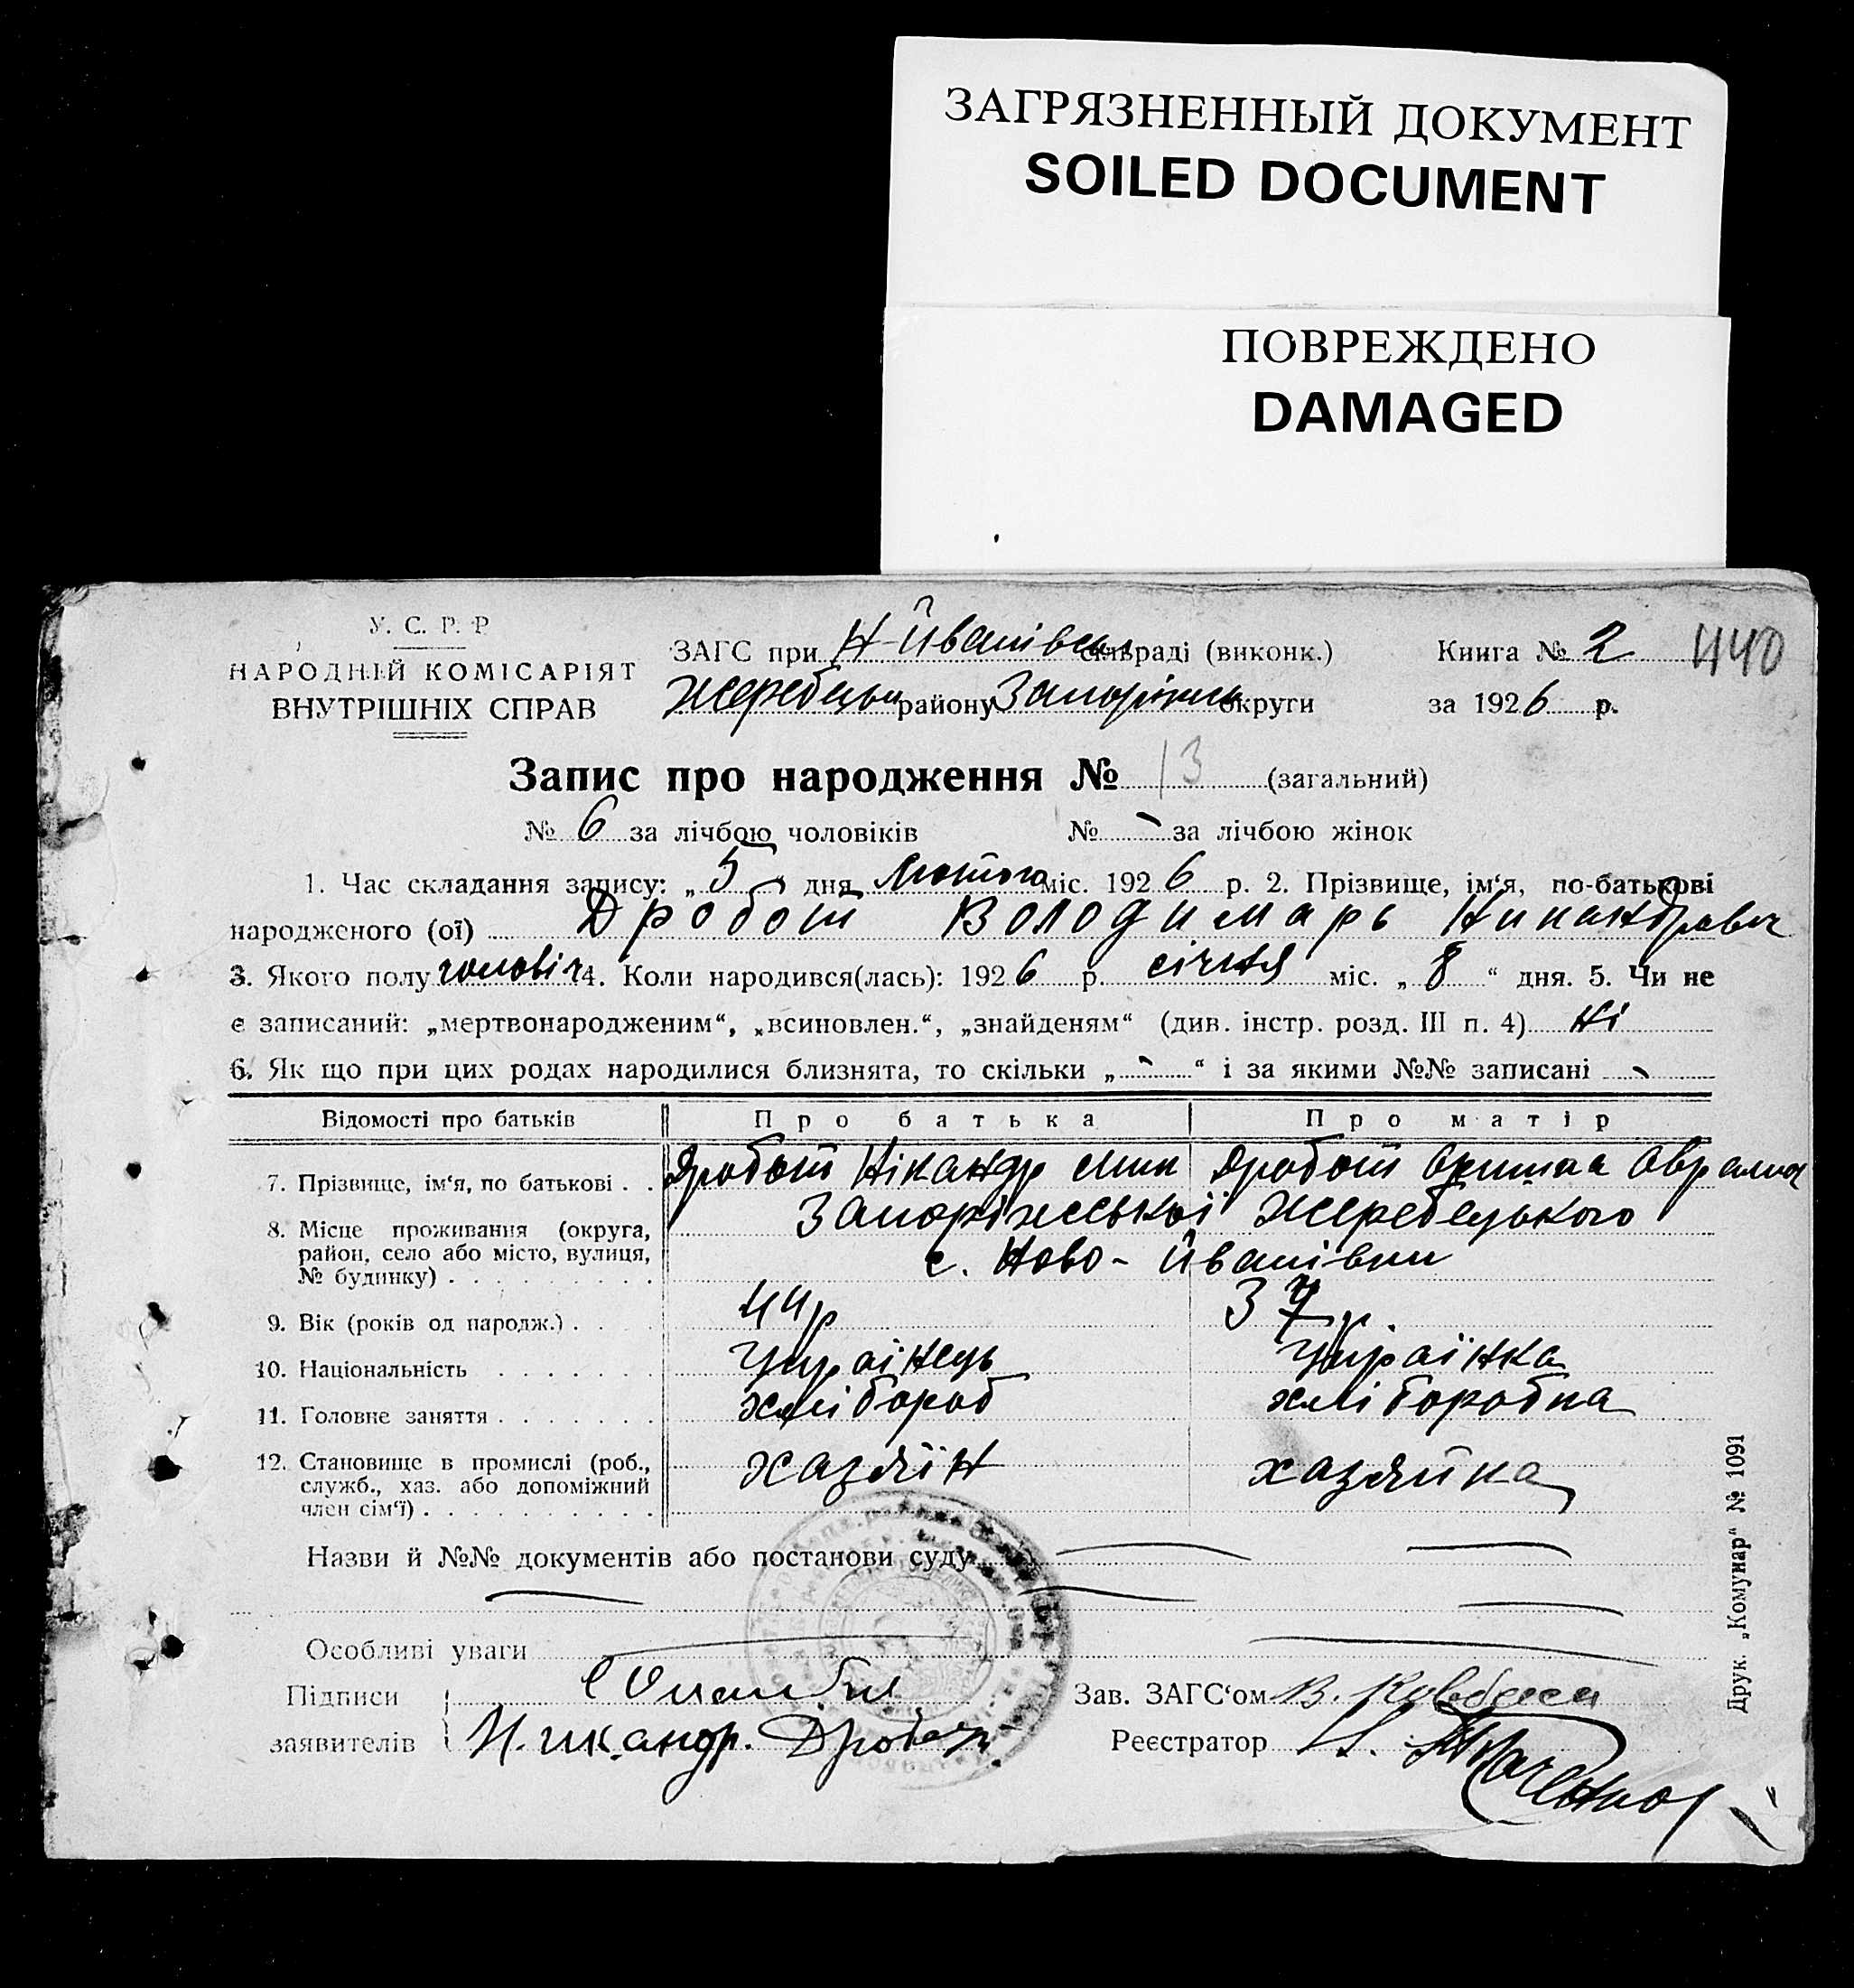 ЗАГРЯЗНЕННЫЙ ДОКУМЕНТ
SOILED DOCUMENT
ПОВРЕЖДЕНО
DAMAGED
У. С. Р. Р
НАРОДНІЙ КОМІСАРІЯТ
ВНУТРІШНІХ СПРАВ
ЗАГС при Н-Йванівськ сільраді (виконк.)
Книга № 2 440
Жеребецьк району Запоріжськ округи
за 1926 р.
Запис про народження № 13 (загальний)
№ 6 за лічбою чоловіків № - за лічбою жінок
1. Час складання запису: „5“ дня Лютого міс. 1926 р. 2. Прізвище, ім‘я, по-батькові
народженого (ої) Дробот Володимарь Никандрович
3. Якого полу чоловіч 4. Коли народився(лась): 1926 р. січня міс. „8“ дня. 5. Чи не
є записаний: „мертвонародженим“, „всиновлен.“, „знайденям“ (див. інстр. розд. III п. 4) Ні
6. Як що при цих родах народилися близнята, то скільки „-“ і за якими №№ записані -
Відомості про батьків Про батька Про матір
7. Прізвище, ім‘я, по батькові . . Дробот Нікандр Мик Дробот Аврамов
8. Місце проживання (округа, район, село або місто, вулиця, № будинку) . . . . . . . . . Запоріжської Жеребецького
с. Ново-Йванівки
9. Вік (років од народж.) . . . 44р 37 р.
10. Національність . . . . . . . Українець Українка
11. Головне заняття . . . . . . . хлібороб хліборобка
12. Становище в промислі (роб., служб., хаз. або допоміжний член сім‘ї) . . . . . . . . . . хазяїн хазяйка
Назви й №№ документів або постанови суду
Особливі уваги
Підписи
заявителів Никандр. Дробот
Зав. ЗАГС‘ом В.
Реєстратор Ткаченко
Друк. „Комунар“ № 1091